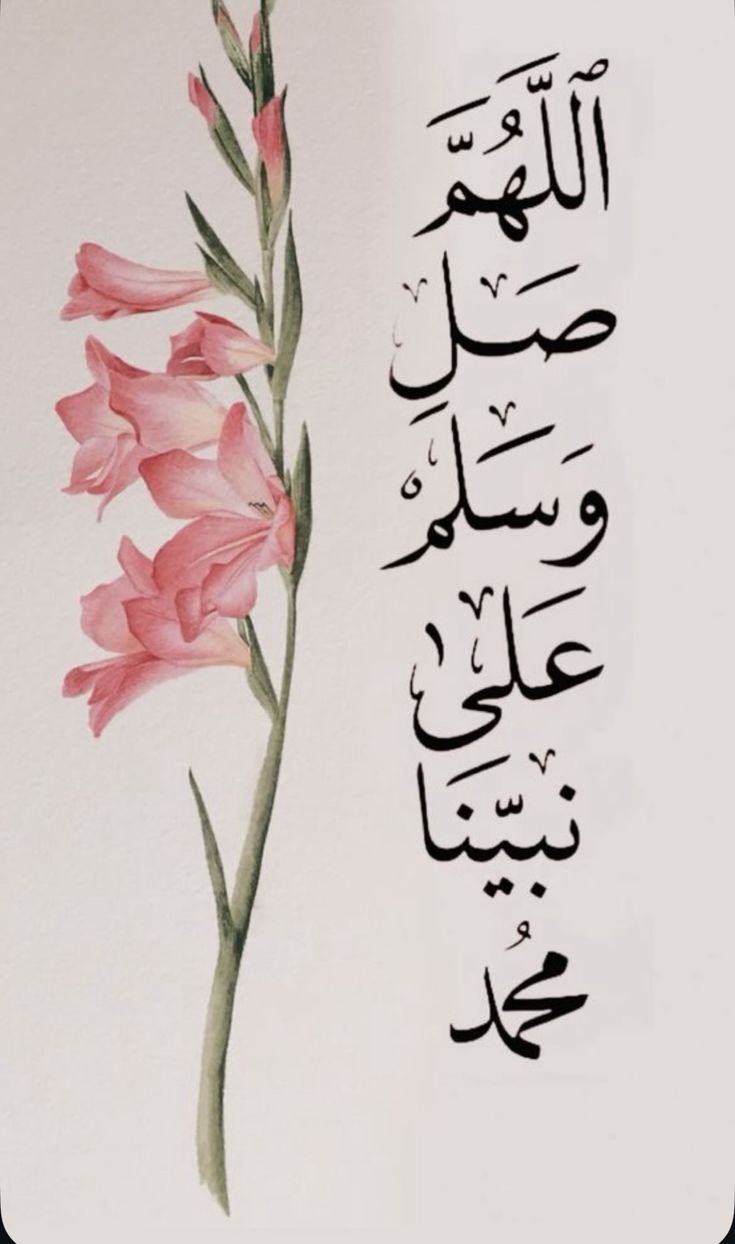 ٱللَّهُمَّ
صَلِ
وَسَلِمْ
عَلَىٰ
نَبيّنَا
محمُد